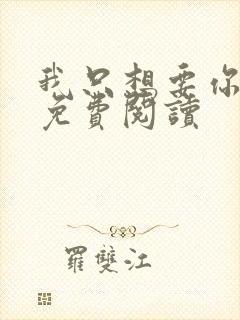 我只想要你
免費閱讀
羅雙江